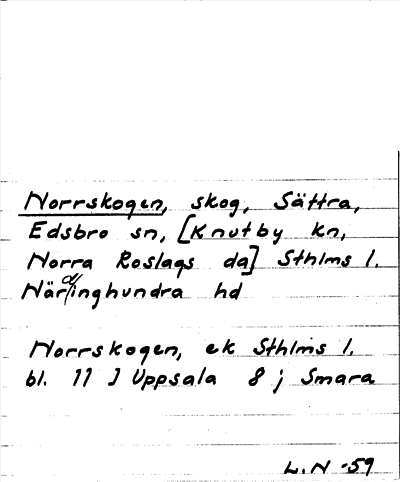 Norrskogen, skog, Sättra,
Edsbro sn, [Knutby kn,
Norra Roslags da] Sthlms l.
Närdinghundra hd
Norrskogen, ek Sthlms l.
bl. 11 J Uppsala 8 j Smara
L.N -59